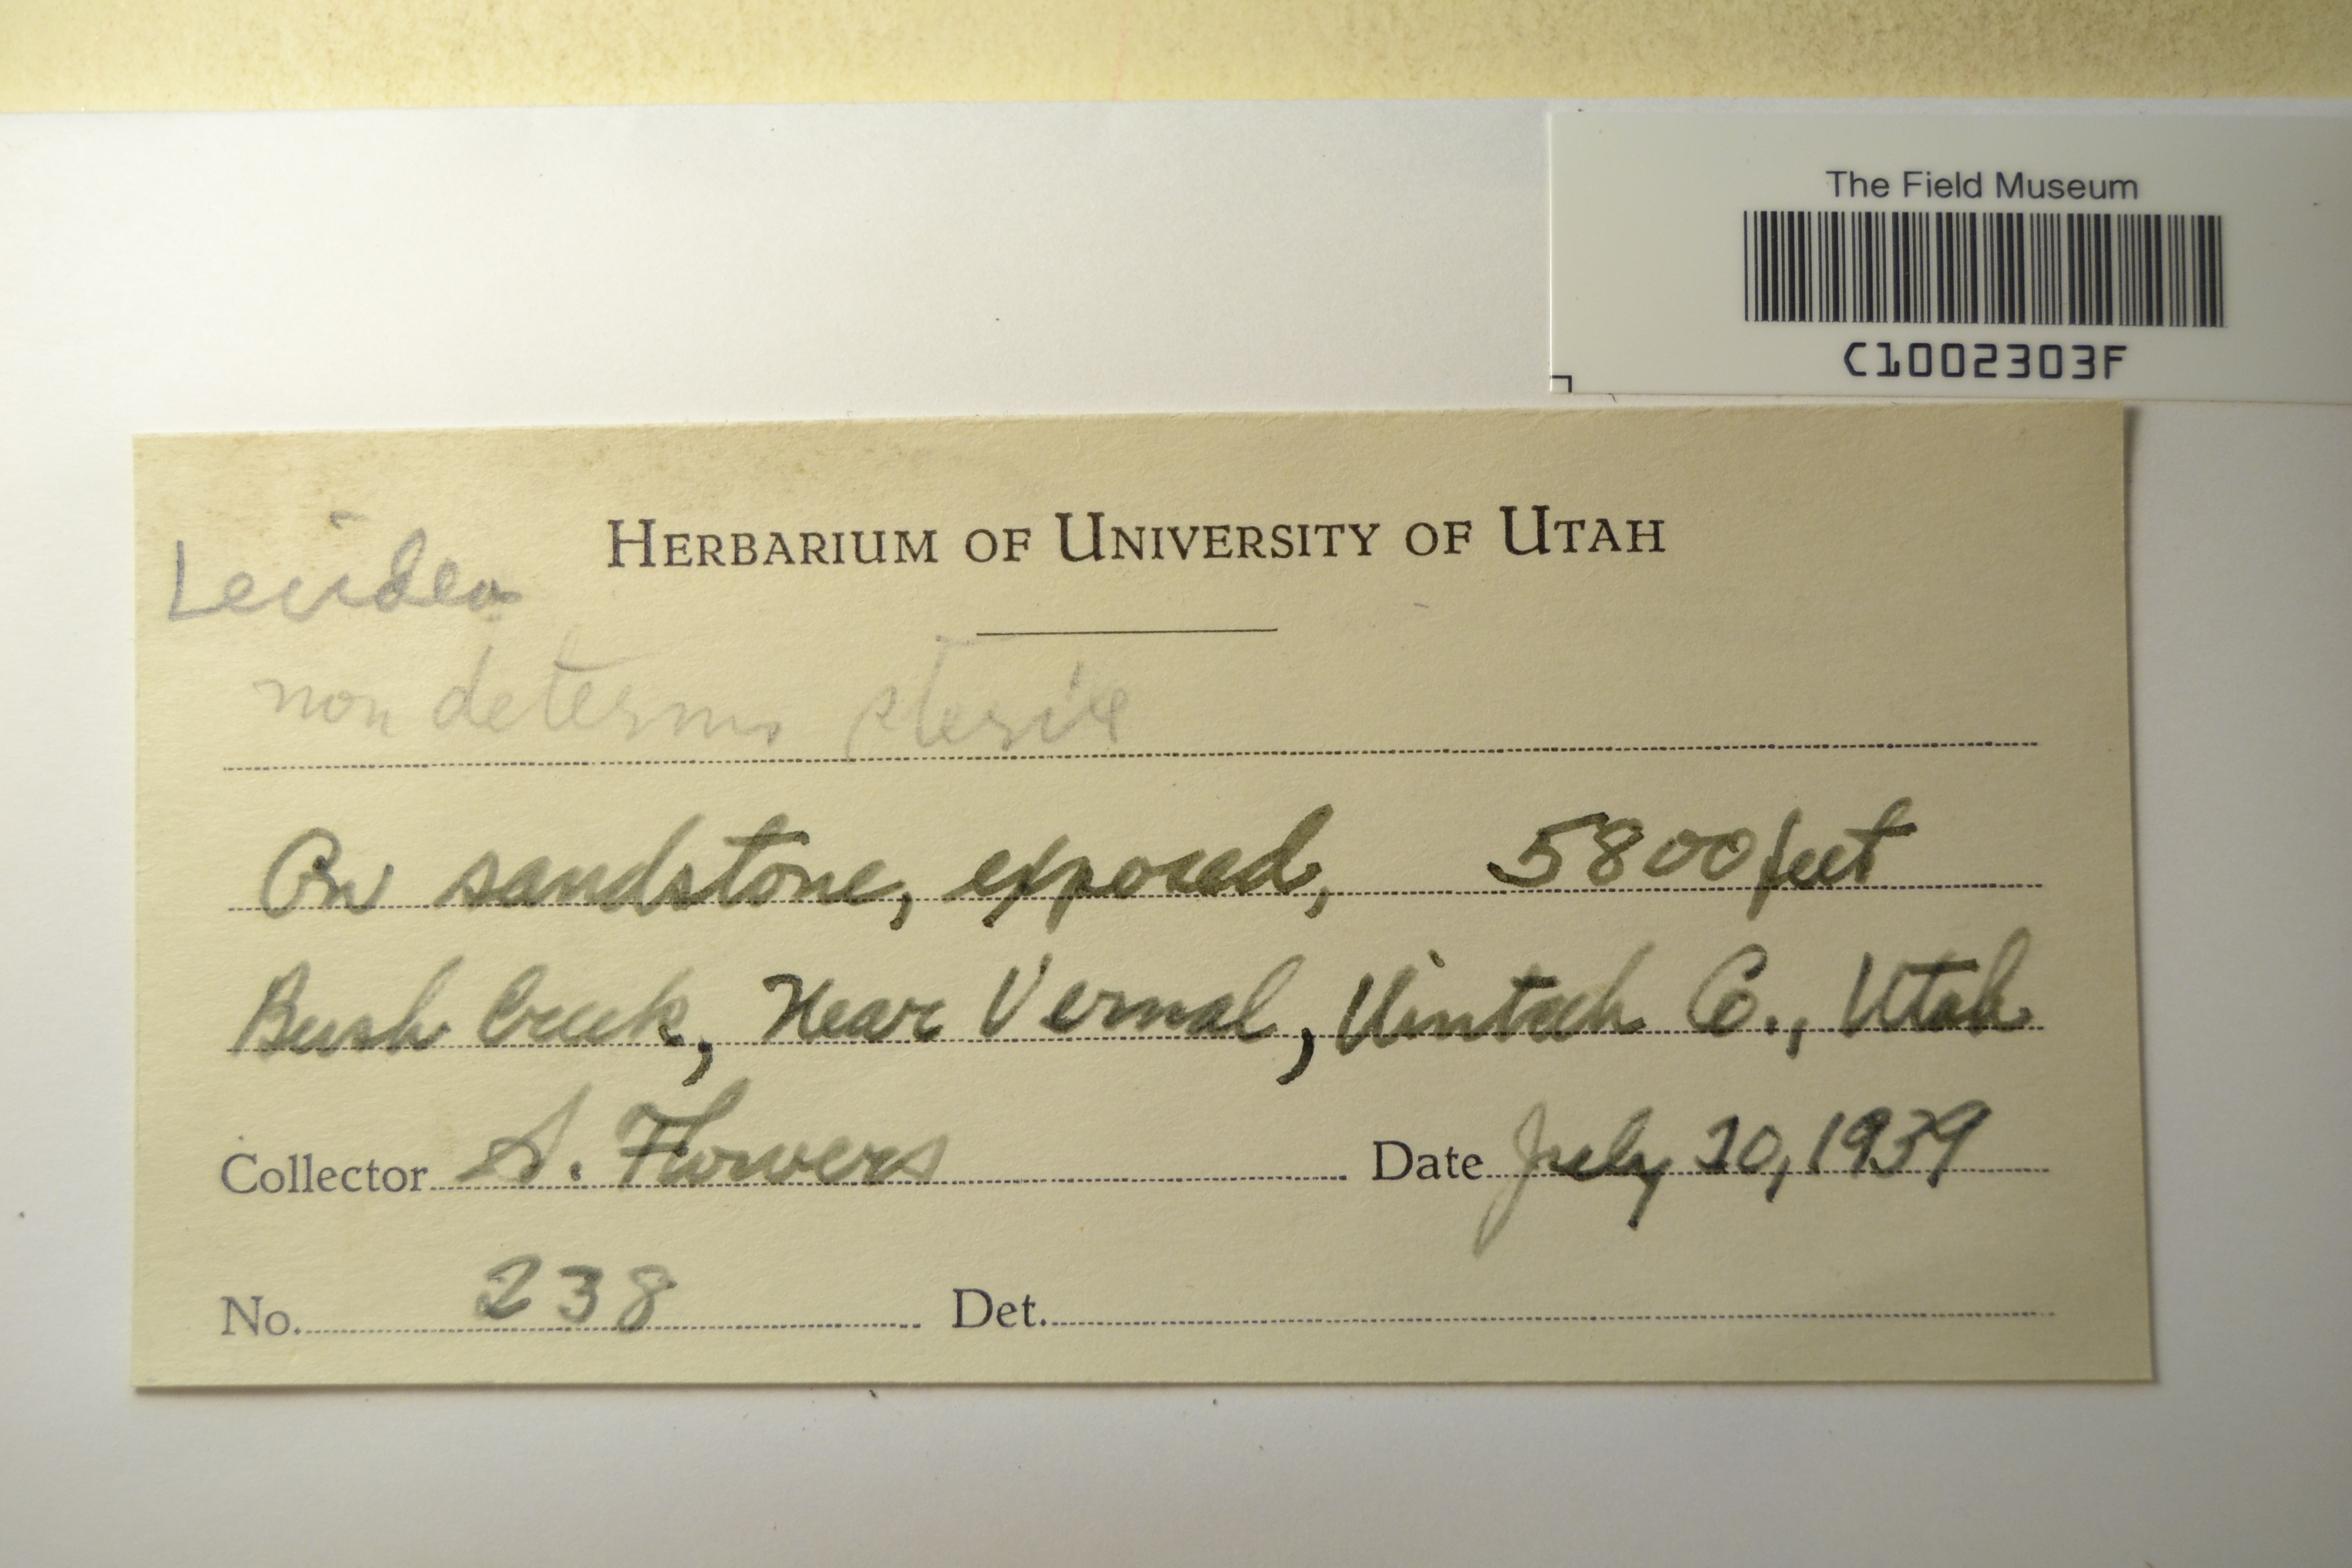 The Field Museum
C1002303F
HERBARIUM OF UNIVERSITY OF UTAH
Lecidea
non determ sterile
On sandstone, exposed, 5800 feet
Brush Creek, Near Vernal, Uintah Co., Utah
Collector S. Flowers Date July 20, 1939
No. 238 Det.